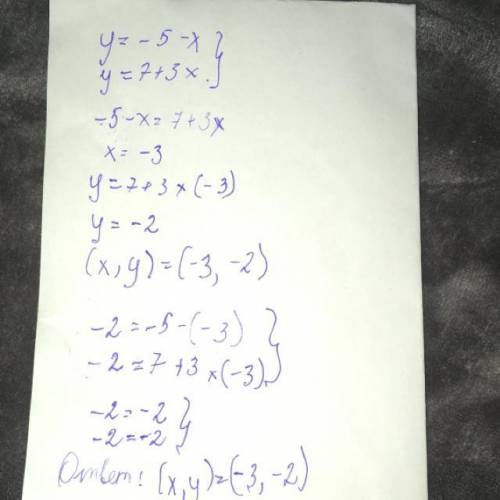 y = -5 - x }
y = 7 + 3x. }
-5 - x = 7 + 3x
x = -3
y = 7 + 3 × (-3)
y = -2
(x, y) = (-3, -2)
-2 = -5 - (-3) }
-2 = 7 + 3 × (-3) }
-2 = -2 }
-2 = -2 }
Ответ: (x, y) = (-3, -2)